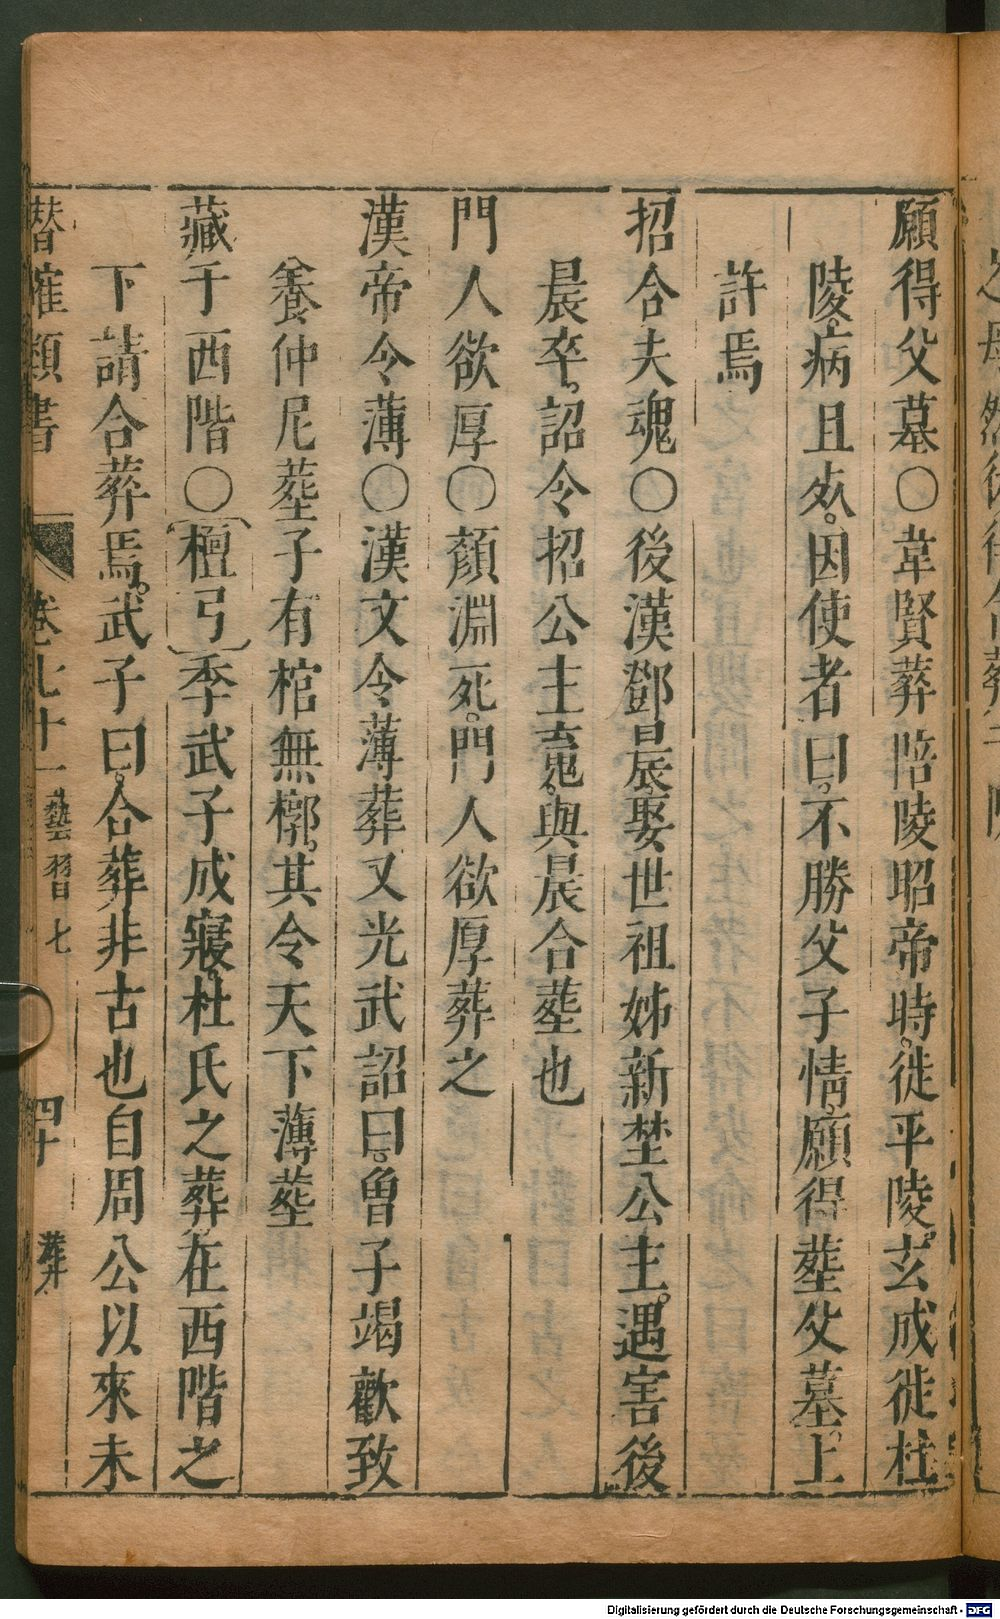 願得父墓〇韋賢葬陪陵昭帝時。徙平陵。玄成徙杜
陵。病且死。因使者曰。不勝父子情。願得塟父墓。上
許焉
招合夫魂〇後漢鄧晨娶世祖姊新埜公主。遇害後
晨卒。詔令招公主䰟。與晨合塟也
門人欲厚〇顏淵死。門人欲厚葬之
漢帝令薄〇漢文令薄葬又光武詔曰。曾子竭歡致
養仲尼塟子有棺無槨。其令天下薄塟
藏于西階〇〔檀弓〕季武子成寢。杜氏之葬在西階之
下請合葬焉。武子曰。合葬非古也自周公以來未
潛確類書 卷七十一 藝習七 四十 葬
Digitalisierung gefördert durch die Deutsche Forschungsgemeinschaft - DFG